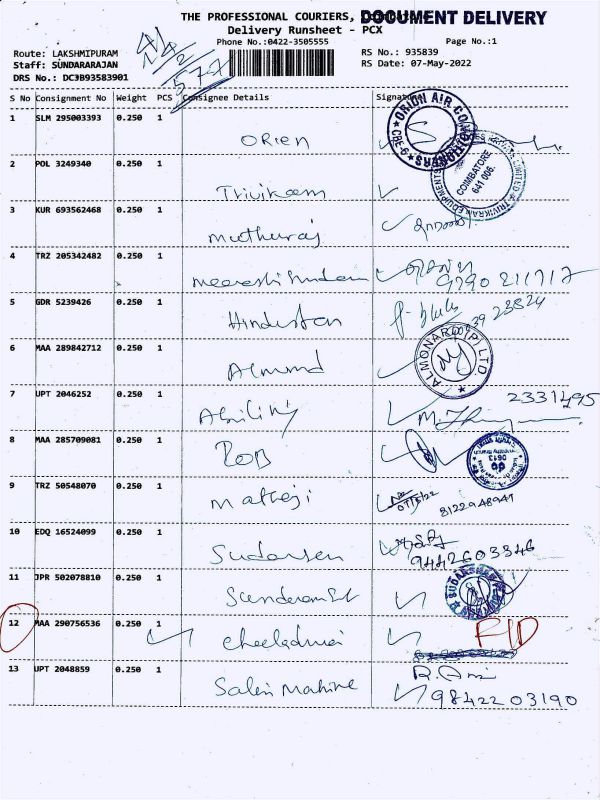 THE PROFESSIONAL COURIERS, DOCUMENT DELIVERY
Delivery Runsheet - PCX
Phone No.:0422-3505555 Page No.:1
Route: LAKSHMIPURAM RS No.: 935839
Staff: SUNDARARAJAN RS Date: 07-May-2022
DRS No.: DC3B93583901
577
S No Consignment No Weight PCS Consignee Details Signature
1 SLM 295003393 0.250 1
Orien
ORION AIR CONDITIONERS CBE-6
2 POL 3249340 0.250 1
Trivikram
COIMBATORE 641 006.
3 KUR 693562468 0.250 1
Muthuraj
4 TRZ 205342482 0.250 1
9790 211717
5 GDR 5239426 0.250 1
Hindustan
39 23524
6 MAA 289842712 0.250 1
Almond
ALMONARD (P) LTD.
7 UPT 2046252 0.250 1
2331495
Ability
8 MAA 285709081 0.250 1
ROB
0613
9 TRZ 50548070 0.250 1
Matheji
8122948941
10 EDQ 16524099 0.250 1
Sudarsen
9442603346
11 JPR 502078810 0.250 1
12 MAA 290756536 0.250 1
RTD
13 UPT 2048859 0.250 1
Salem Mahine
98422 03190